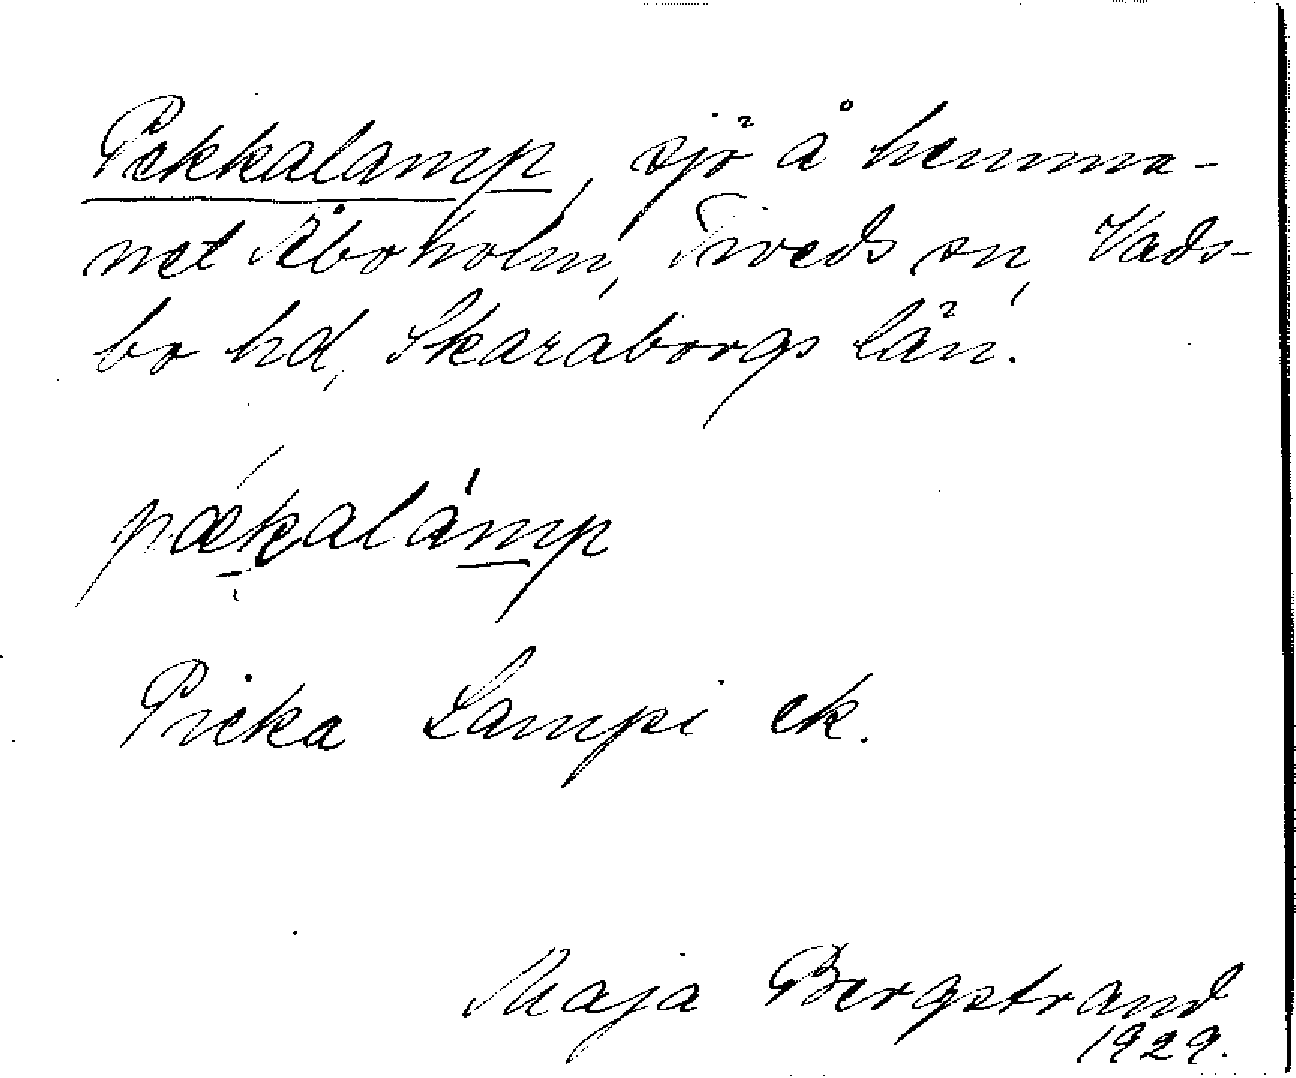 Pekkalamp, sjö å hemma-
net Åboholm, Tiveds sn, Vads-
bo hd, Skaraborgs län.
pækalámp
Picka Lampi ek.
Maja Bergstrand
1929.